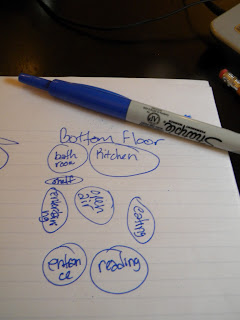 Sharpie
Bottom Floor
bath
room
Kitchen
open
air
eating
entran
ce
reading